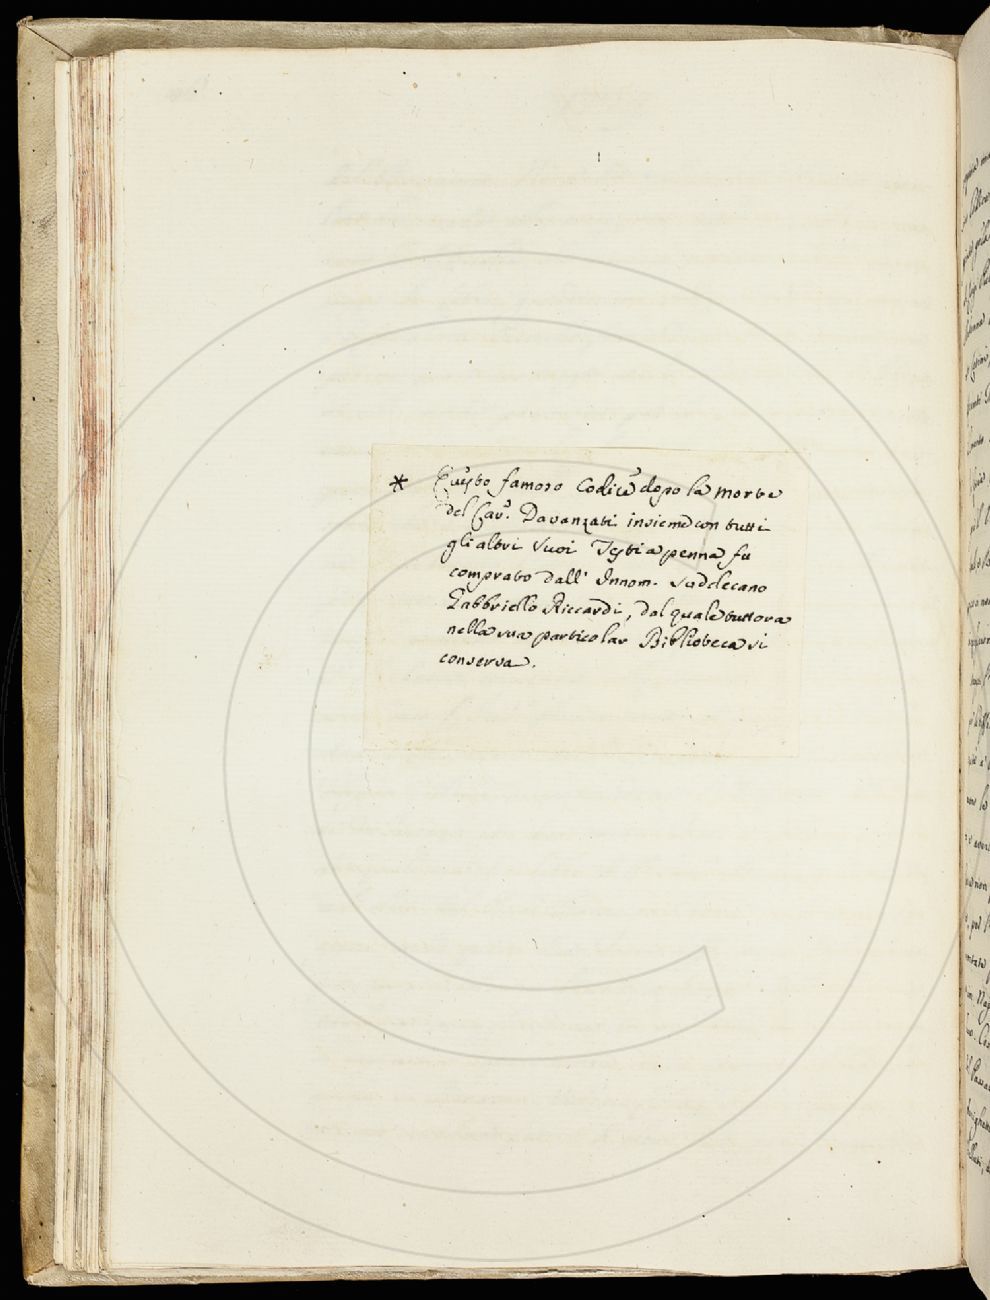 * Questo famoso Codice dopo la morte
del Cav.e Davanzati insieme con tutti
gli altri suoi Testi a penna fu
comprato dall' Innom. Suddecano
Gabbriello Riccardi, dal quale tuttora
nella sua particolar Biblioteca si
conserva.